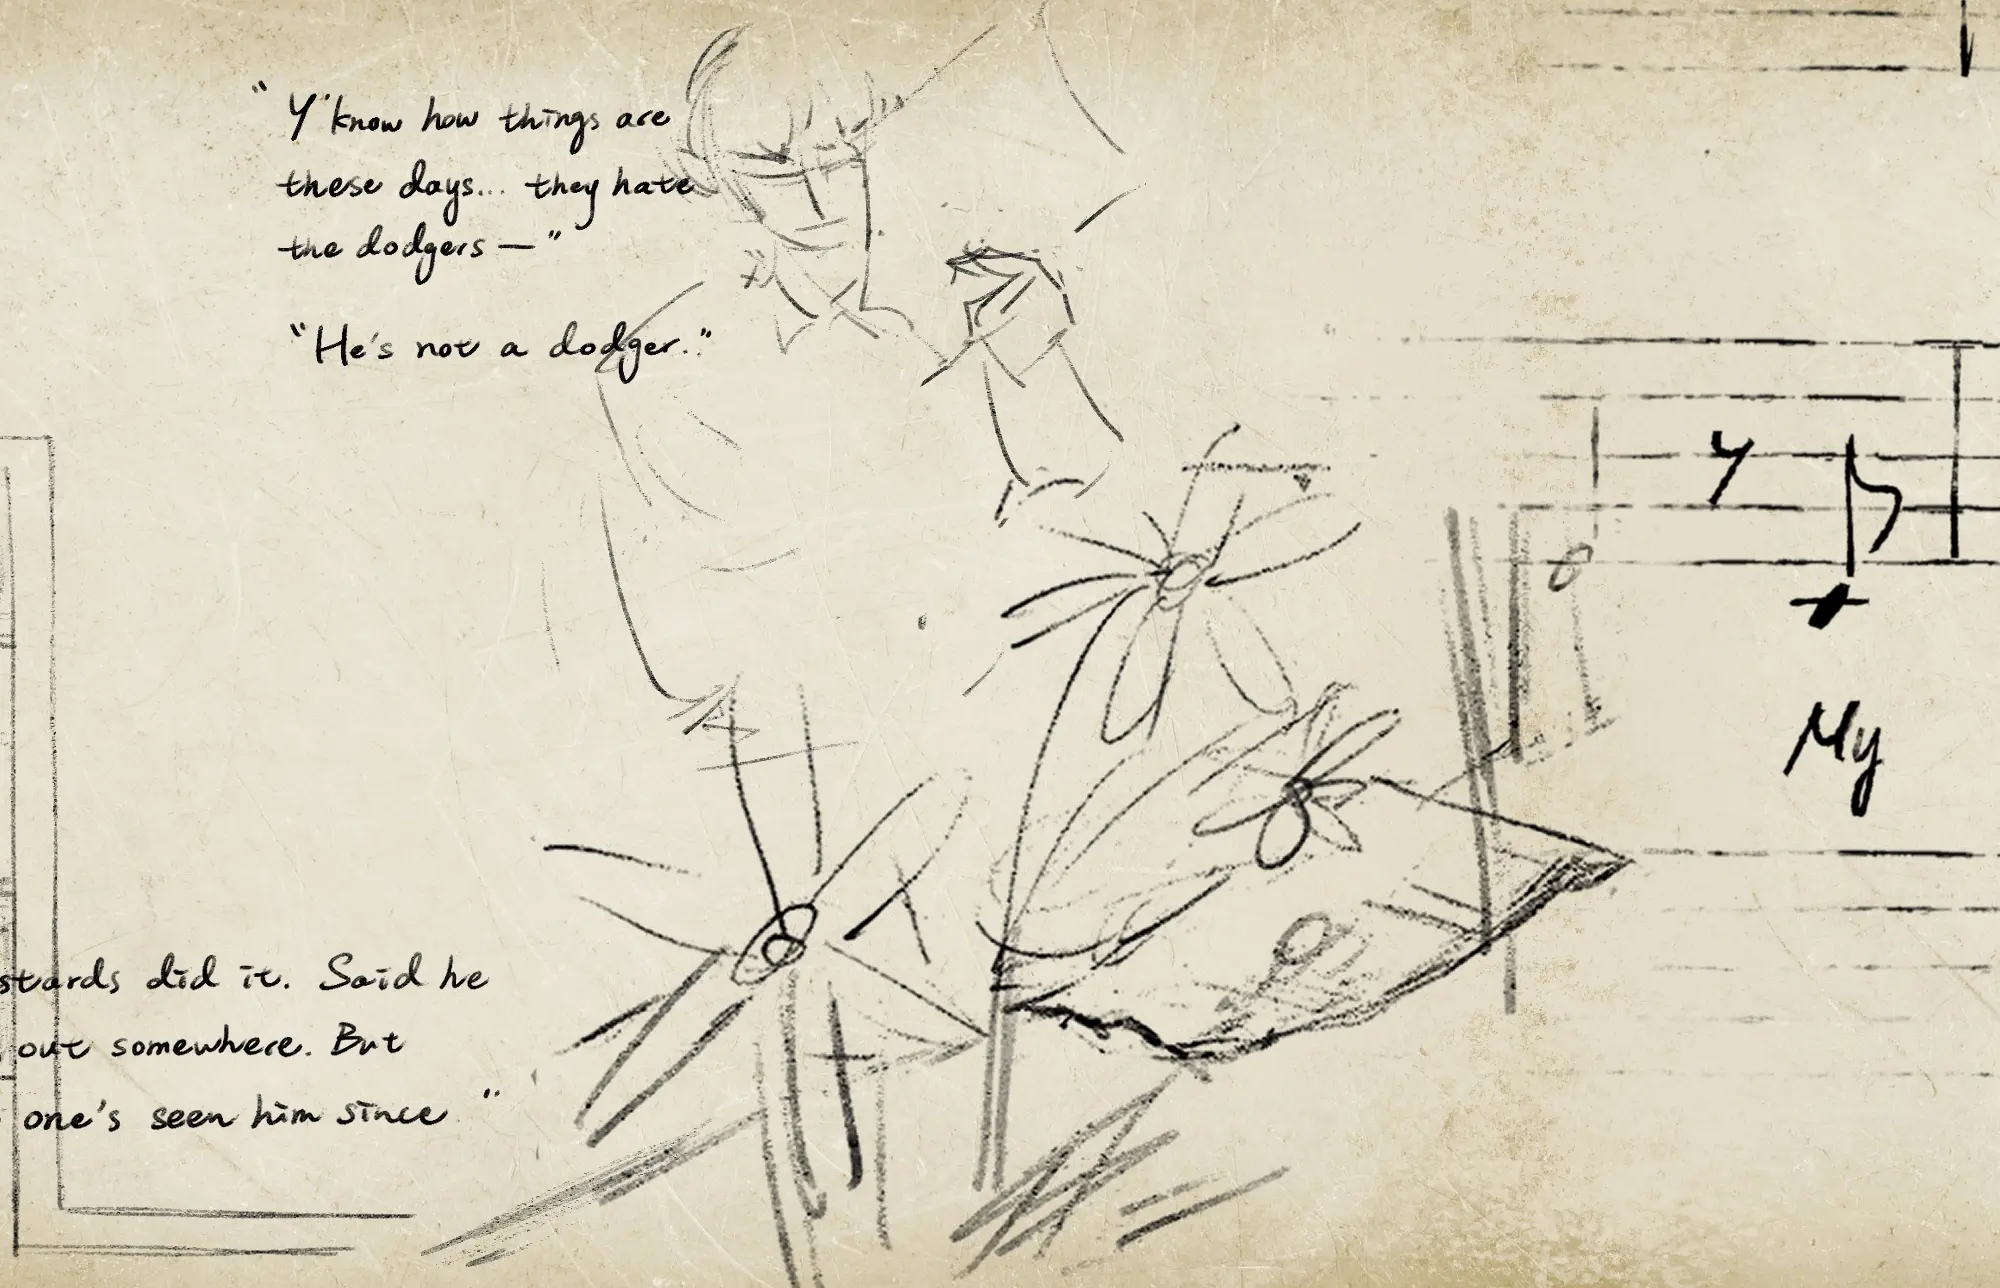 "Y'know how things are
these days... they hate
the dodgers — "
"He's not a dodger."
stards did it. Said he
out somewhere. But
one's seen him since "
My